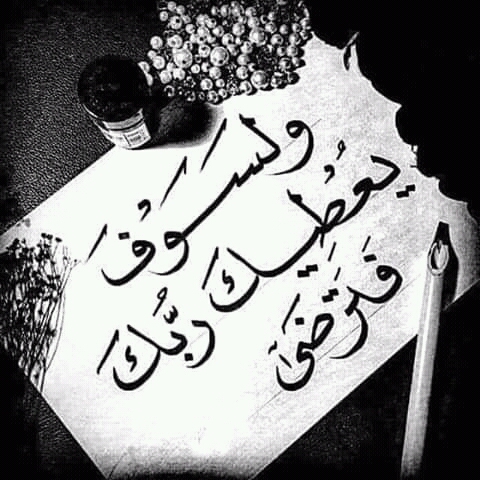 ولَسَوْفَ
يُعْطِيكَ رَبُّكَ
فَتَرْضَىٰ